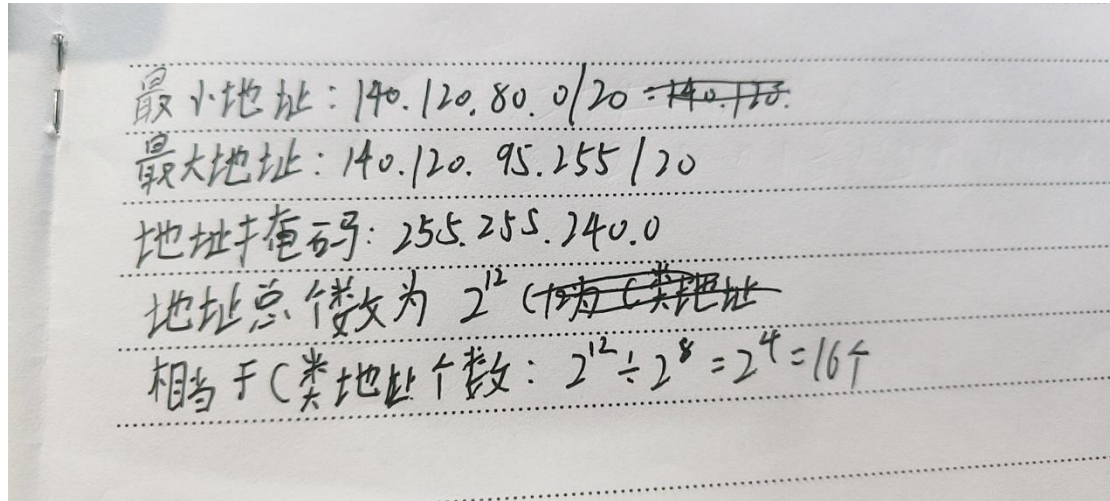 最小地址：140.120.80.0/20
最大地址：140.120.95.255/20
地址掩码：255.255.240.0
地址总个数为 2^12
相当于C类地址个数：2^12÷2^8=2^4=16个